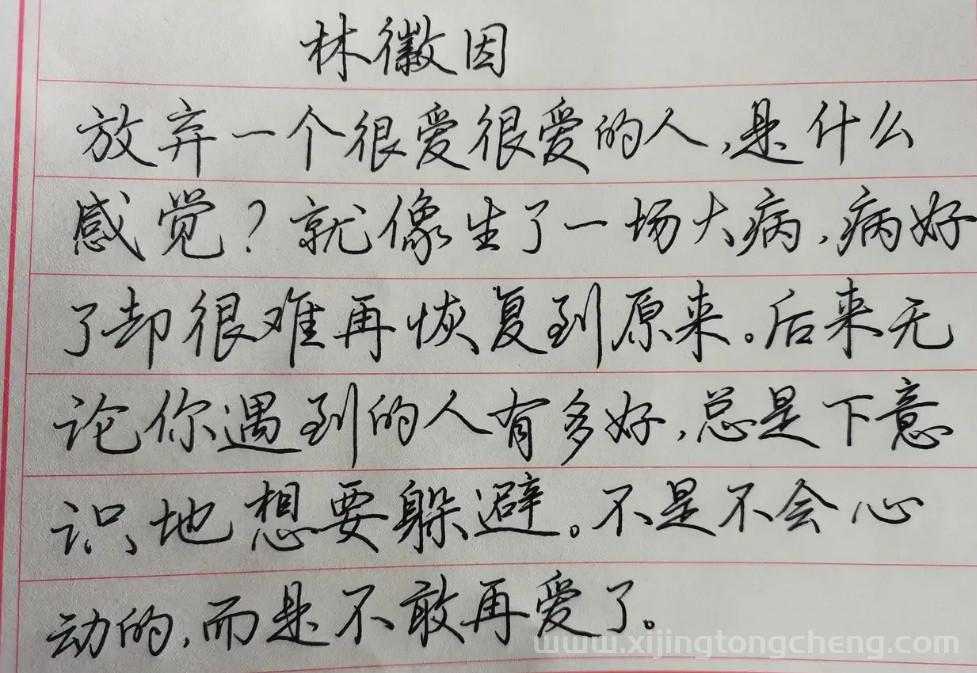 林徽因
放弃一个很爱很爱的人,是什么
感觉?就像生了一场大病,病好
了却很难再恢复到原来。后来无
论你遇到的人有多好,总是下意
识地想要躲避。不是不会心
动的,而是不敢再爱了。
www.xijingtongcheng.com